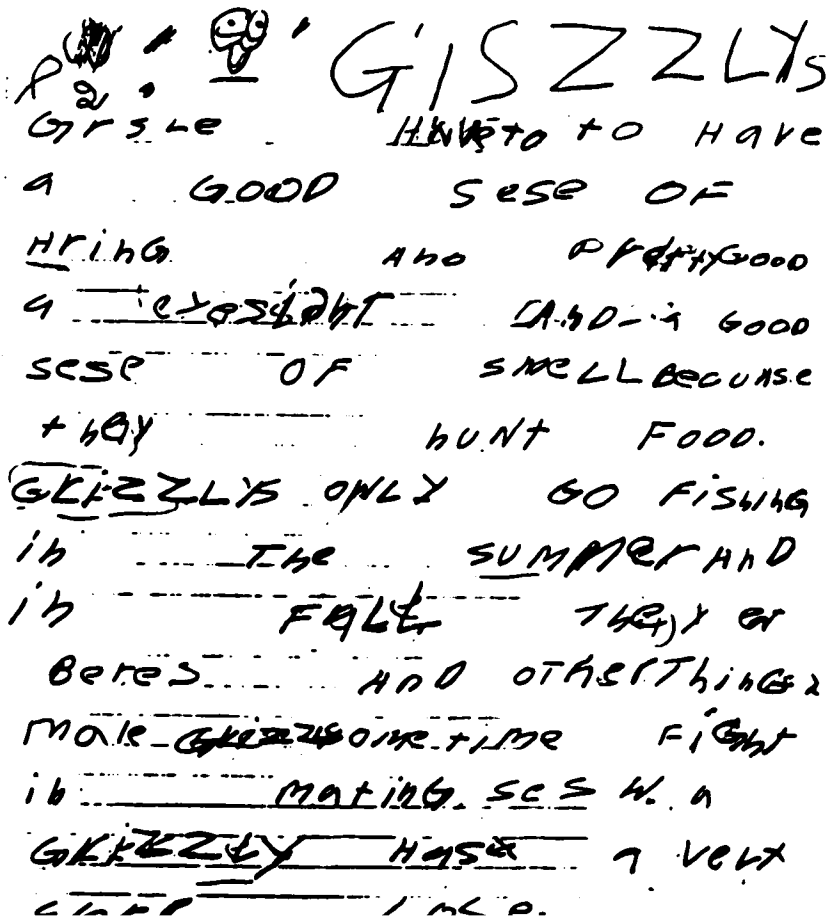 GISZZLYs
GrsLe HAVETO tO Have
a GOOD SeSe OF
HrinG AnD PrettyGOOD
a eyesight AnD a GOOD
sese OF smeLLBecuase
they hUNt FooD.
GRIZZLYS ONLY GO FishinG
in The summer AnD
in FALL They er
Beres AnD oTherThinGs
male sometime FiGht
in matinG. ses W. a
GRIZZLY Hase a very